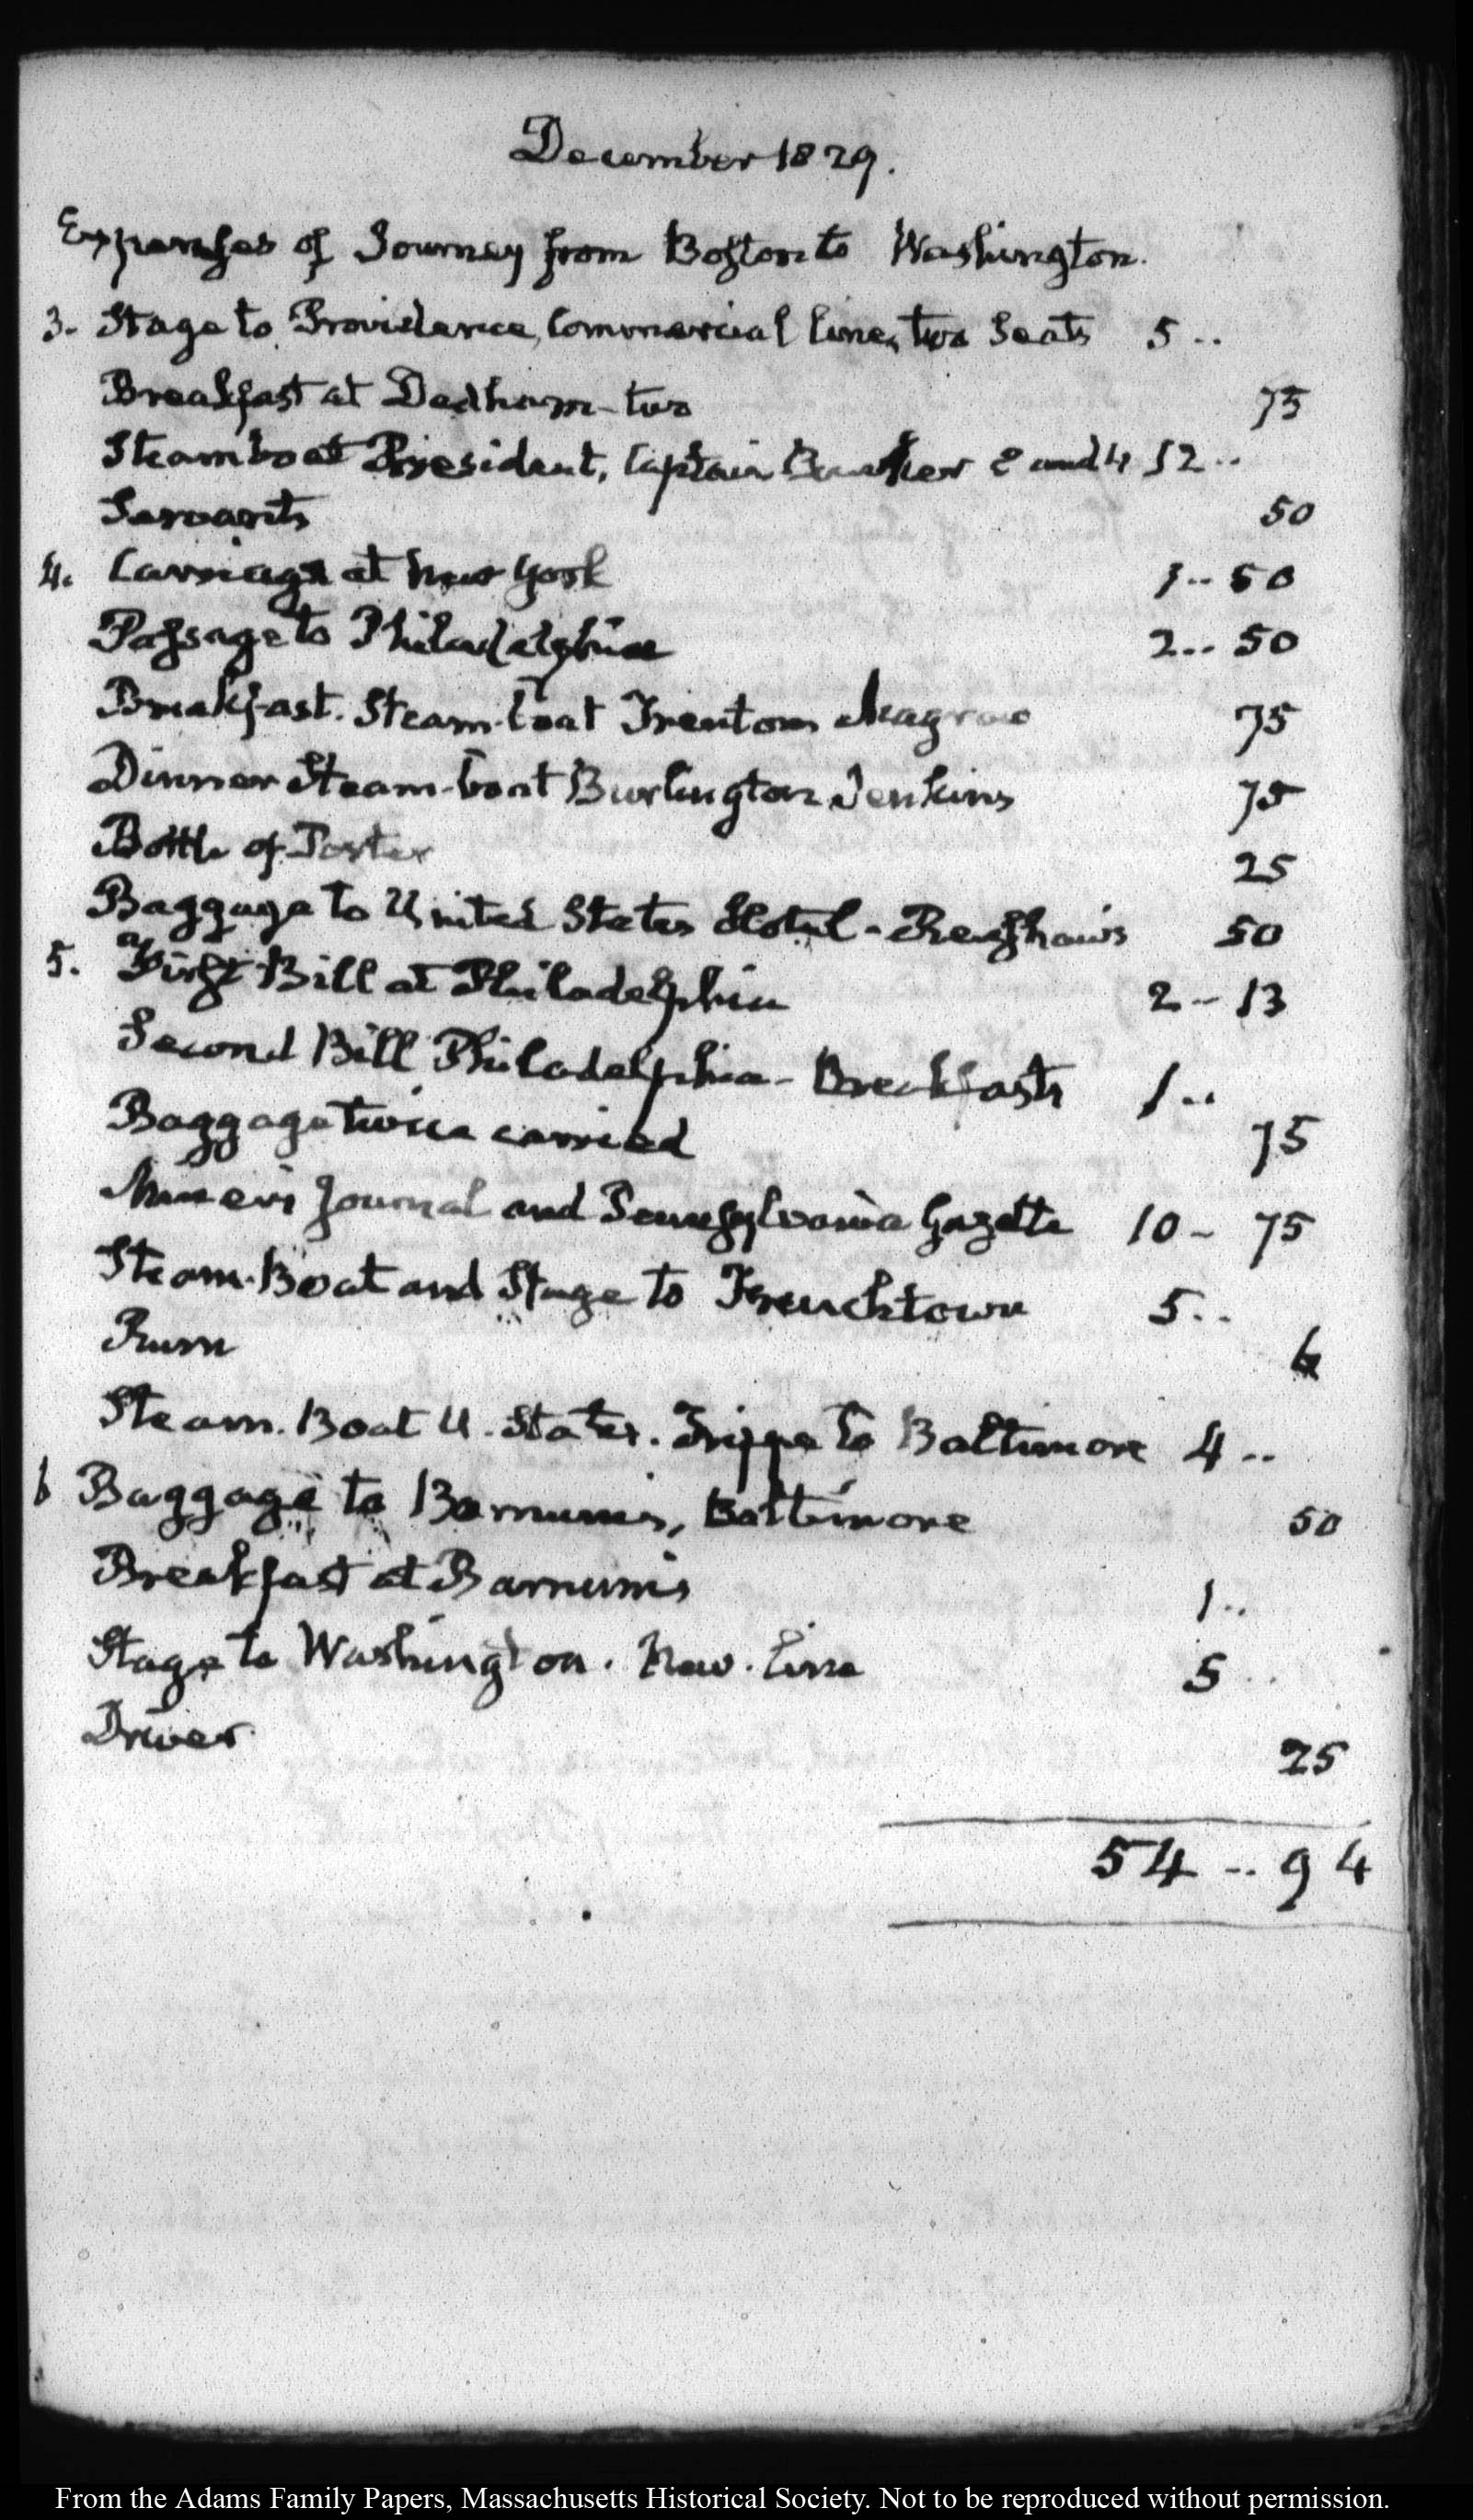 December 1829.
Expenses of Journey from Boston to Washington.
3. Stage to Providence, Commercial line, two Seats 5 ..
Breakfast at Dedham - two 75
Steamboat President, Captain Bunker 8 and 4 12 ..
Servants 50
4. Carriage at New York 1 .. 50
Passage to Philadelphia 2 .. 50
Breakfast. Steam-boat Trenton 75
Dinner Steam-boat Burlington Jenkins 75
Bottle of Porter 25
Baggage to United States Hotel - Renshaw's 50
5. First Bill at Philadelphia 2 - 13
Second Bill Philadelphia - Breakfasts 1 ..
Baggage twice carried 75
Journal and Pennsylvania Gazette 10 - 75
Steam-Boat and Stage to Frenchtown 5 ..
Rum 6
Steam. Boat U. States. Trippe to Baltimore 4 ..
6 Baggage to Barnum's, Baltimore 50
Breakfast at Barnum's 1 ..
Stage to Washington. New. Line 5 ..
Driver 25
54 .. 94
From the Adams Family Papers, Massachusetts Historical Society. Not to be reproduced without permission.